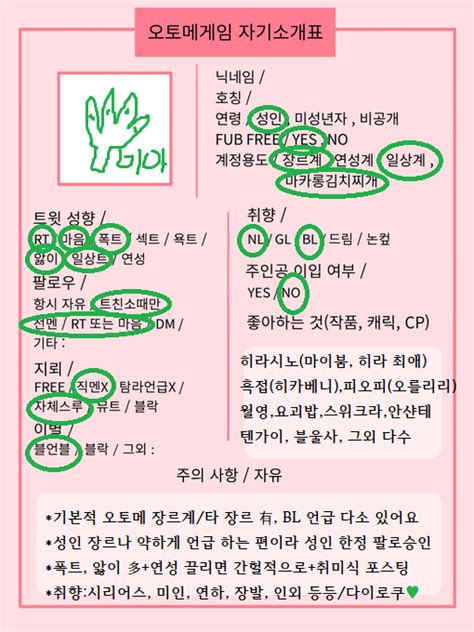 오토메게임 자기소개표
미아
닉네임 /
호칭 /
연령 / 성인 , 미성년자 , 비공개
FUB FREE / YES , NO
계정용도 / 장르계 , 연성계 , 일상계 ,
마카롱김치찌개
트윗 성향 /
RT / 마음 / 폭트 / 섹트 / 욕트 /
앓이 / 일상트 / 연성
팔로우 /
항시 자유 , 트친소때만
선멘 / RT 또는 마음 / DM /
기타 :
지뢰 /
FREE / 직멘X / 탐라언급X /
자체스루 / 뮤트 / 블락
이별 /
블언블 / 블락 / 그외 :
취향 /
NL / GL / BL / 드림 / 논컾
주인공 이입 여부 /
YES / NO
좋아하는 것(작품, 캐릭, CP)
히라시노(마이붐, 히라 최애)
흑접(히카베니),피오피(오를리리)
월영,요괴밥,스위크라,안샨테
텐가이, 블울사, 그외 다수
주의 사항 / 자유
*기본적 오토메 장르계/타 장르 有, BL 언급 다소 있어요
*성인 장르나 약하게 언급 하는 편이라 성인 한정 팔로승인
*폭트, 앓이 多+연성 끌리면 간헐적으로+취미식 포스팅
*취향:시리어스, 미인, 연하, 장발, 인외 등등/다이로쿠♥